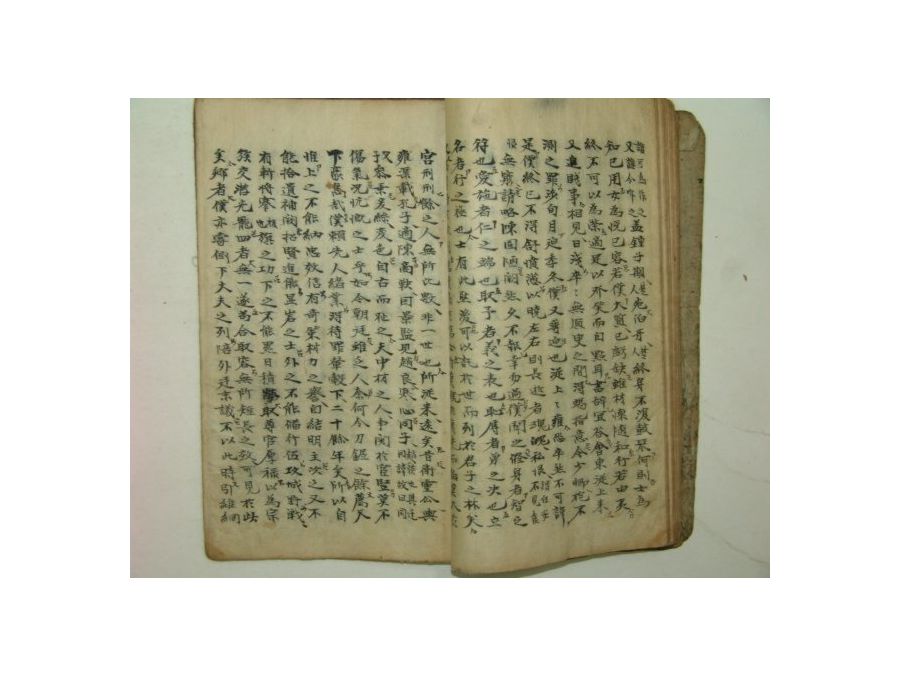 蓋鍾子期死伯牙終身不復鼓琴何則士爲
知己用女爲悅己容若僕大質已虧缺雖材懷隨和行若由夷
終不可以爲榮適足以發笑而自點耳書辭宜答會東從上來
又迫賤事相見日淺卒〻無須臾之間得竭指意今少卿抱不
測之罪涉旬月迫季冬僕又薄從上〻雍恐卒然不可諱
是僕終已不得舒憤懣以曉左右則長逝者魂魄私恨
無窮請略陳固陋闕然久不報幸勿過僕聞之修身者智之
符也愛施者仁之端也取予者義之表也恥辱者勇之決也立
名者行之極也士有此五然後可以託於世而列於君子之林矣
宮刑刑餘之人無所比數非一世也所從來遠矣昔衛靈公與
雍渠載孔子適陳商鞅因景監見趙良寒心同子
參乘爰絲變色自古而恥之夫中材之人事關於宦豎莫不
傷氣況忼慨之士乎如今朝廷雖乏人奈何令刀鋸之餘薦天
下豪雋哉僕賴先人緒業得待罪輦轂下二十餘年矣所以自
惟上之不能納忠效信有奇策材力之譽自結明主次之又不
能拾遺補闕招賢進能顯岩之士外之不能備行伍攻城野戰
有斬將搴旗之功下之不能累日積勞取尊官厚祿以爲宗
族交游光寵四者無一遂苟合取容無所短長之效可見於此
矣鄉者僕亦嘗側下大夫之列陪外廷末議不以此時引維綱